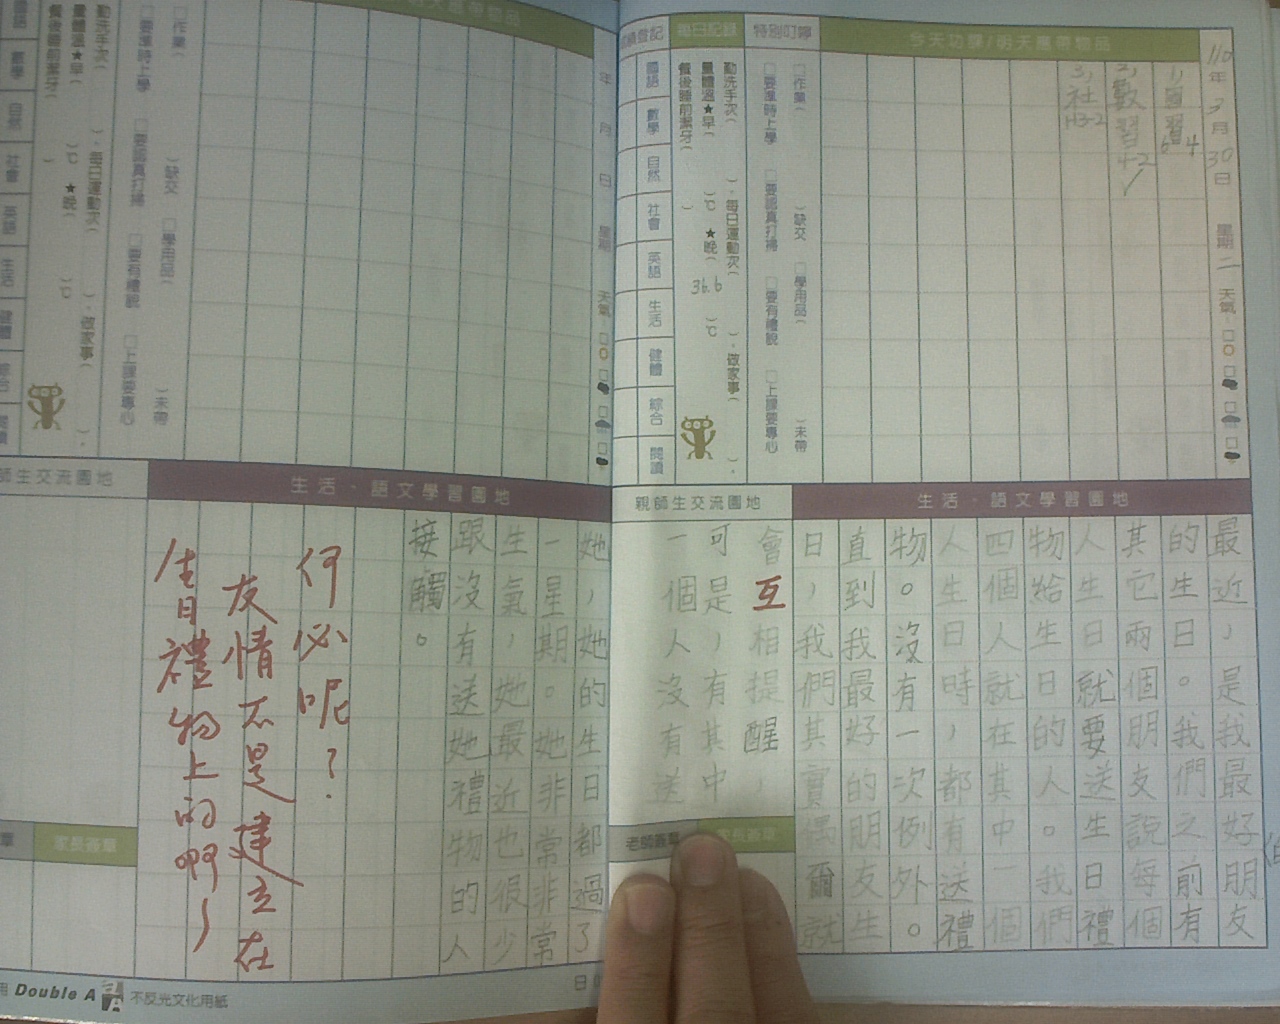 今天功課/明天應帶物品
110年
月30日
星期二
天氣
1,國習
6 4
2,數習
4-2✓
3,社
H3-2
特別叮嚀
□作業( )缺交
□學用品( )未帶
□要準時上學
□要認真打掃
□要有禮貌
□上課要專心
每日記錄
勤洗手次( )、每日運動次( )、做家事( )、
量體溫★早( )℃ ★晚(36.6)℃
餐後睡前潔牙( )
國語
數學
自然
社會
英語
生活
健體
綜合
閱讀
生活、語文學習園地
最近,是我最好朋友
的生日。我們之前有
其它兩個朋友說每個
人生日就要送生日禮
物給生日的人。我們
四個人就在其中一個
人生日時,都有送禮
物。沒有一次例外。
直到我最好的朋友生
日,我們其實偶爾就
會互相提醒,
可是,有其中
一個人沒有送
親師生交流園地
老師簽章
家長簽章
年 月 日 星期
天氣
□作業( )缺交
□學用品( )未帶
□要準時上學
□要認真打掃
□要有禮貌
□上課要專心
勤洗手次( )、每日運動次( )、做家事( )、
量體溫★早( )℃ ★晚( )℃
餐後睡前潔牙( )
數學
自然
社會
英語
生活
健體
綜合
閱讀
生活、語文學習園地
她,她的生日都過了
一星期。她非常非常
生氣,她最近也很少
跟沒有送她禮物的人
接觸。
何必呢?
友情不是建立在
生日禮物上的啊~
師生交流園地
章
家長簽章
用 Double A 不反光文化用紙